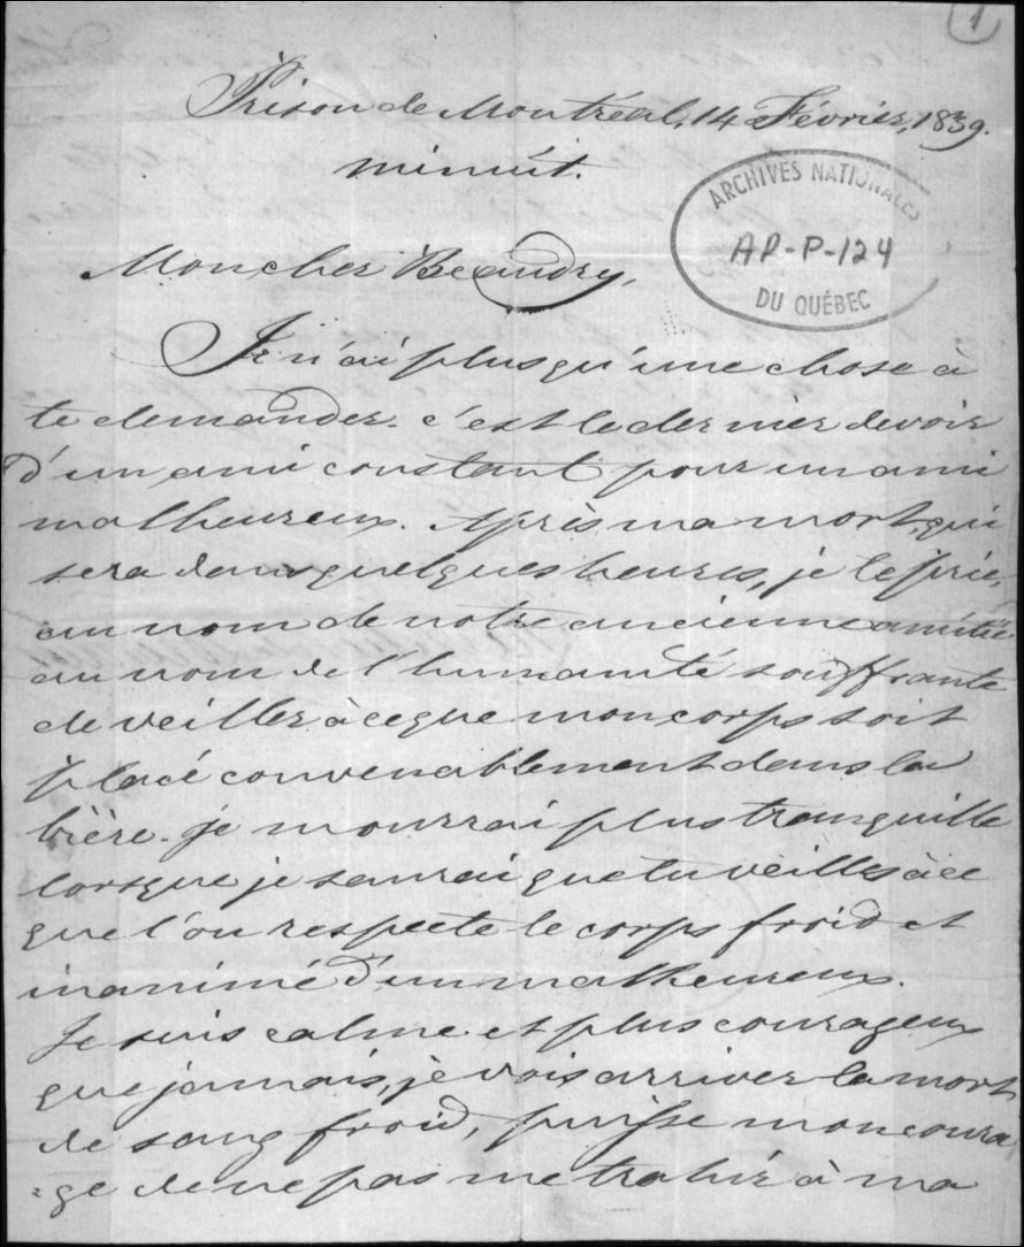 1
Prison de Montréal, 14 Février, 1839.
minuit.
ARCHIVES NATIONALES
AP-P-124
DU QUÉBEC
Mon cher Beaudry,
Je n'ai plus qu'une chose à
te demander. c'est le dernier devoir
d'un ami constant pour un ami
malheureux. Après ma mort, qui
sera dans quelques heures, je te prie,
au nom de notre ancienne amitié
au nom de l'humanité souffrante
de veiller à ce que mon corps soit
placé convenablement dans la
bière. je mourrai plus tranquille
lorsque je saurai que tu veilles à ce
que l'on respecte le corps froid et
inanimé d'un malheureux.
Je suis calme et plus courageux
que jamais, je vois arriver la mort
de sang froid, puisse mon coura
=ge de ne pas me trahir à ma